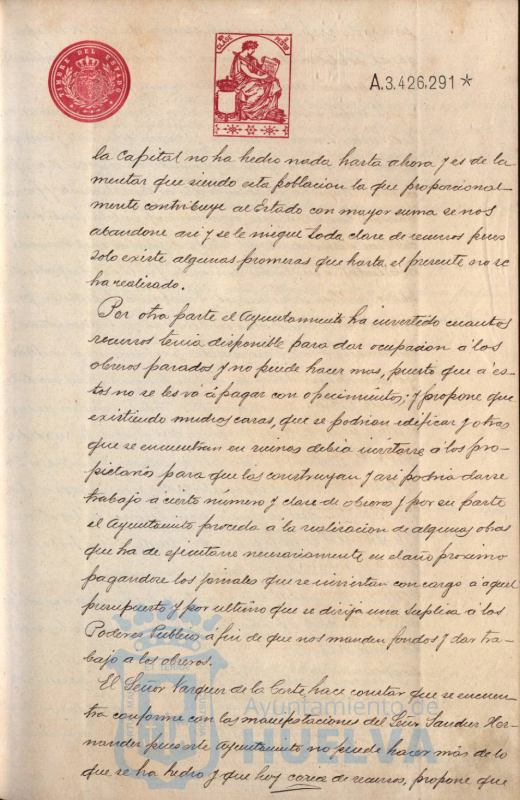 TIMBRE DEL ESTADO
A.3.426.291*
la capital no ha hecho nada hasta ahora y es de la
mentar que siendo esta poblacion la que proporcional-
mente contribuye al Estado con mayor suma se nos
abandone asi y se le niegue toda clase de recursos pues
solo existe algunas promesas que hasta el presente no se
ha realizado.
Por otra parte el Ayuntamiento ha invertido cuantos
recursos tenia disponible para dar ocupacion á los
obreros parados y no puede hacer mas, puesto que á és-
tos no se les vá á pagar con ofrecimientos; y propone que
existiendo muchas casas, que se podrian edificar y otras
que se encuentran en ruinas debia invitarse á los pro-
pietarios para que las construyan y asi podria darse
trabajo á cierto número y clase de obreros y por su parte
el Ayuntamiento proceda á la realizacion de algunas obras
que ha de ejecutarse necesariamente en el año proximo
pagandose los jornales que se inviertan con cargo á aquel
presupuesto y por ultimo que se dirija una suplica á los
Poderes Publico á fin de que nos manden fondos y dar tra-
bajo a los obreros.
El Señor Vazquez de la Corte hace constar que se encuen-
tra conforme con las manifestaciones del Señor Sanchez Her-
nandez pues este Ayuntamiento no puede hacer más de lo
que se ha hecho y que hoy carece de recursos, propone que
Ayuntamiento de
HUELVA